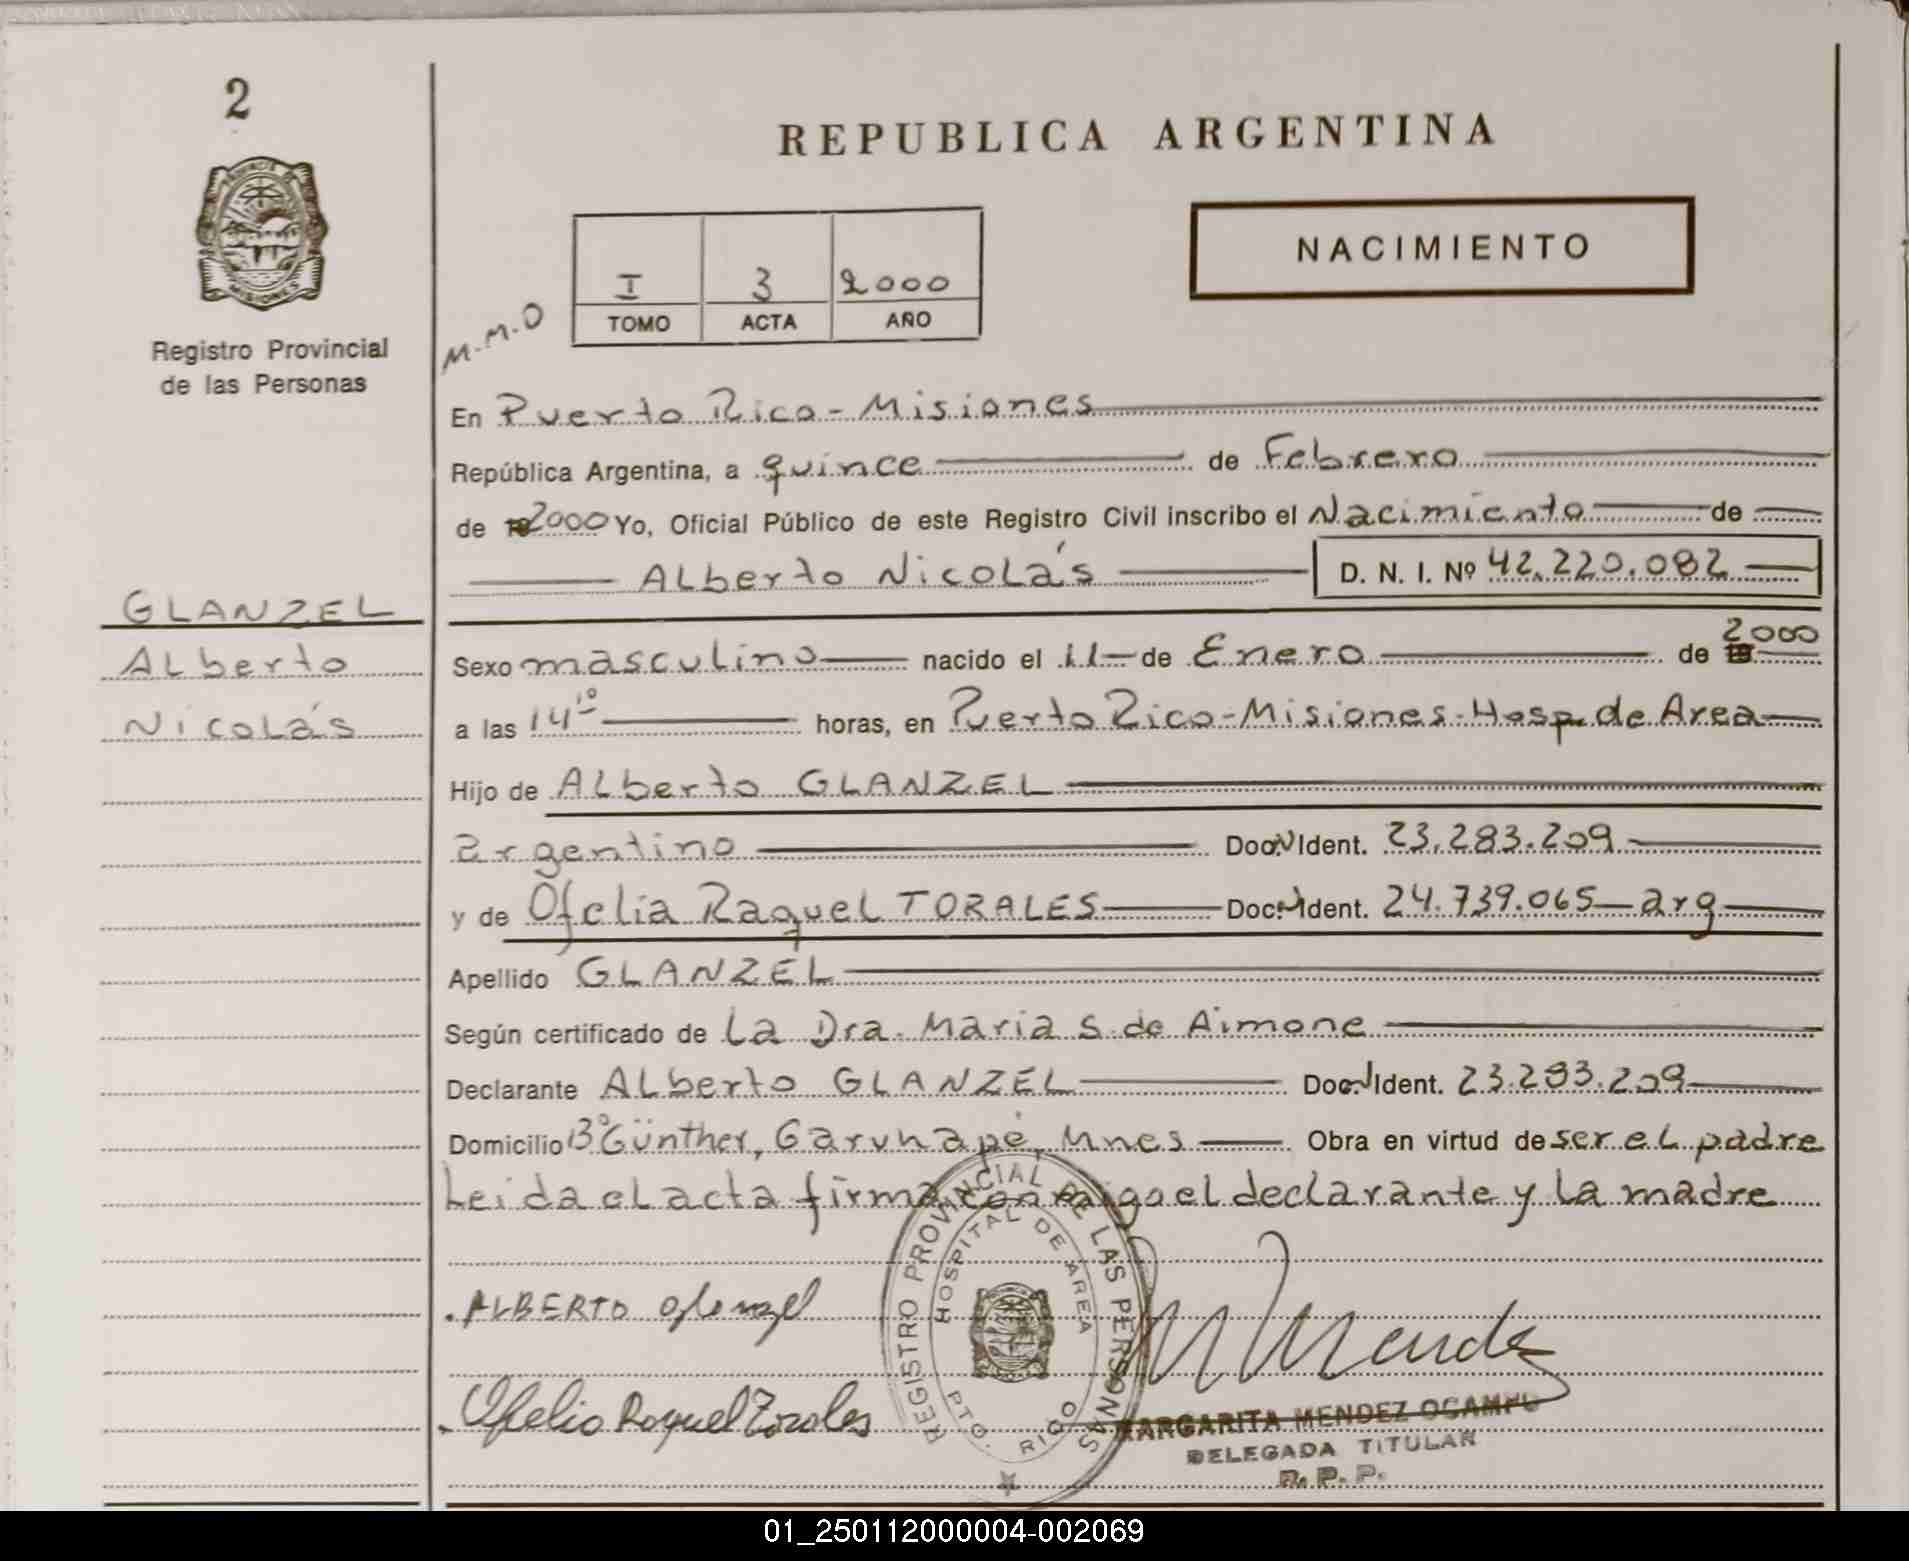 2
REPUBLICA ARGENTINA
PROVINCIA DE MISIONES
NACIMIENTO
I 3 2000
TOMO ACTA AÑO
M.M.O
Registro Provincial
de las Personas
En Puerto Rico - Misiones
República Argentina, a quince de Febrero
de 2000 Yo, Oficial Público de este Registro Civil inscribo el Nacimiento de
Alberto Nicolás D. N. I. Nº 42.220.082
GLANZEL
Alberto
Nicolás
Sexo masculino nacido el 11 de Enero de 2000
a las 14¹⁰ horas, en Puerto Rico - Misiones - Hosp. de Area
Hijo de Alberto GLANZEL
argentino Doc. Ident. 23.283.209
y de Ofelia Raquel TORALES Doc. Ident. 24.739.065 - arg
Apellido GLANZEL
Según certificado de La Dra. Maria S. de Aimone
Declarante Alberto GLANZEL Doc. Ident. 23.283.209
Domicilio Bº Günther, Garuhapé Mnes Obra en virtud de ser el padre
Leida el acta firma conmigo el declarante y la madre
REGISTRO PROVINCIAL DE LAS PERSONAS
HOSPITAL DE AREA
PTO. RICO
ALBERTO Glanzel
M Mendez
Ofelia Raquel Torales
MARGARITA MENDEZ OCAMPO
DELEGADA TITULAR
R. P. P.
01_250112000004-002069